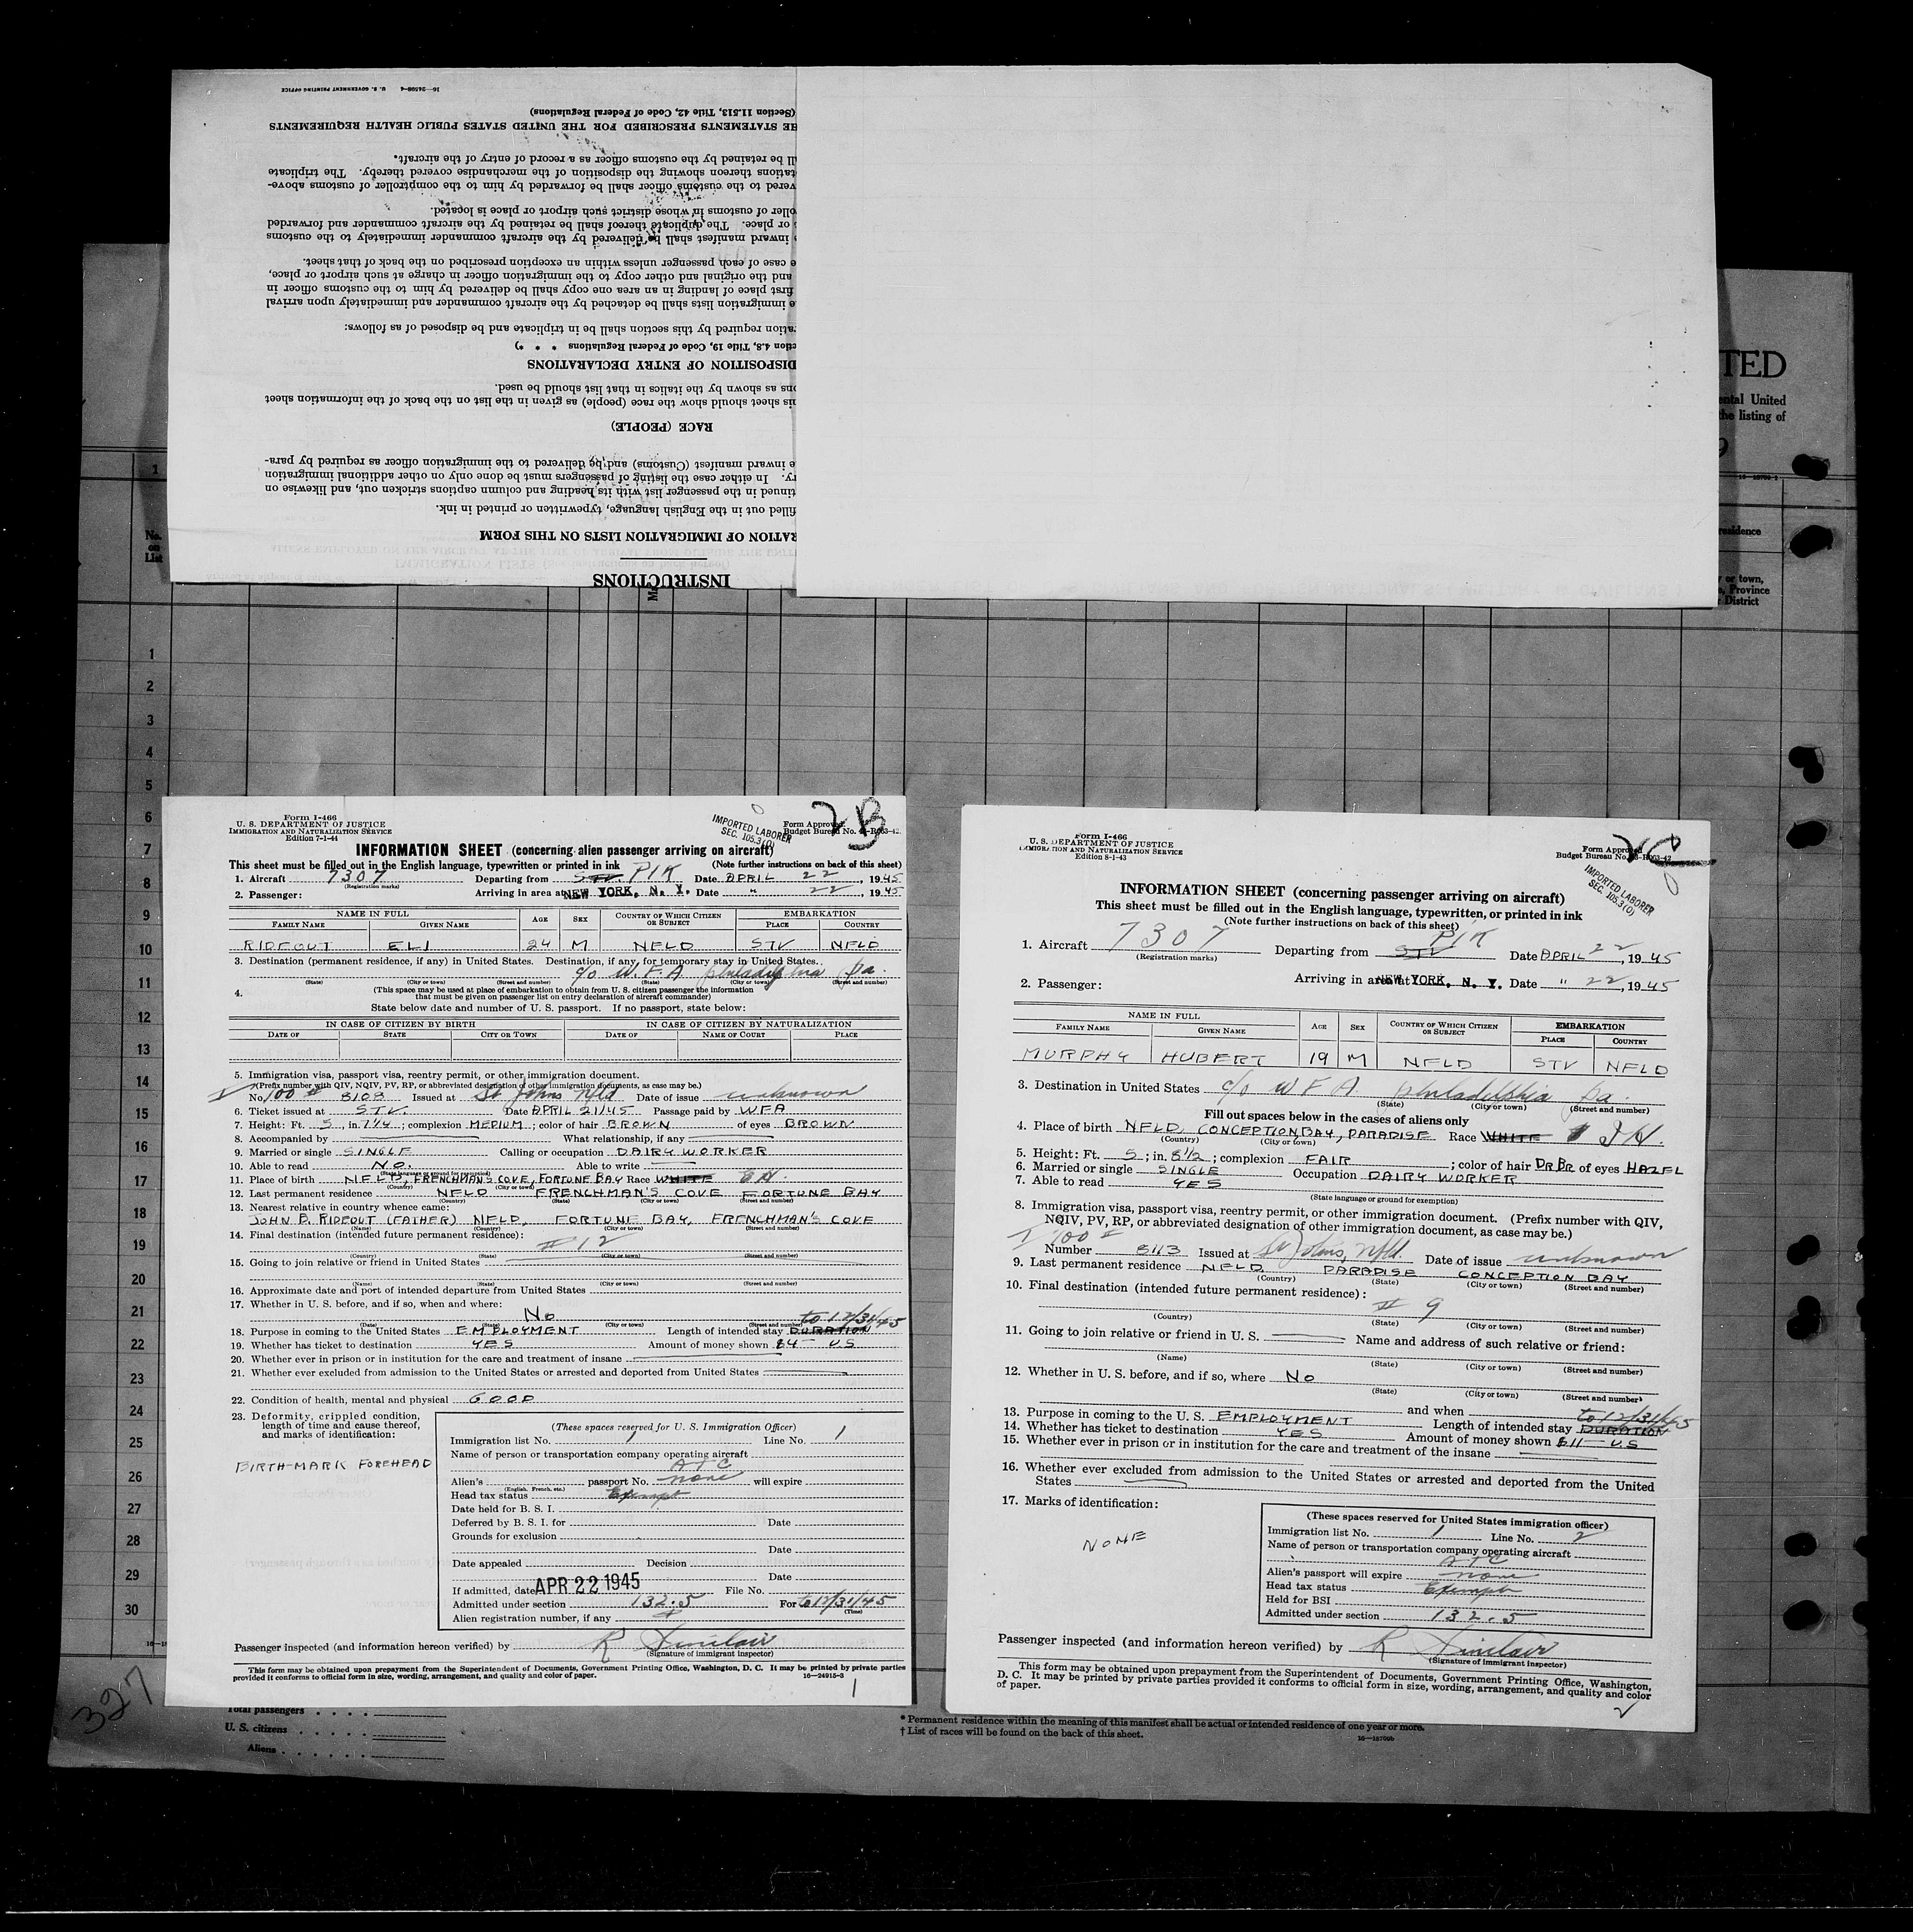 INSTRUCTIONS
RATION OF IMMIGRATION LISTS ON THIS FORM
filled out in the English language, typewritten or printed in ink.
tinued in the passenger list with its heading and column captions stricken out, and likewise on
ry. In either case the listing of passengers must be done only on other additional immigration
e inward manifest (Customs) and be delivered to the immigration officer as required by para-
RACE (PEOPLE)
his sheet should show the race (people) as given in the list on the back of the information sheet
ons as shown by the italics in that list should be used.
DISPOSITION OF ENTRY DECLARATIONS
ction 4.8, Title 19, Code of Federal Regulations * * *)
ration required by this section shall be in triplicate and be disposed of as follows:
e immigration lists shall be detached by the aircraft commander and immediately upon arrival
first place of landing in an area one copy shall be delivered by him to the customs officer in
and the original and other copy to the immigration officer in charge at such airport or place,
e case of each passenger unless within an exception prescribed on the back of that sheet.
e inward manifest shall be delivered by the aircraft commander immediately to the customs
or place. The duplicate thereof shall be retained by the aircraft commander and forwarded
oller of customs in whose district such airport or place is located.
vered to the customs officer shall be forwarded by him to the comptroller of customs above-
tations thereon showing the disposition of the merchandise covered thereby. The triplicate
ll be retained by the customs officer as a record of entry of the aircraft.
HE STATEMENTS PRESCRIBED FOR THE UNITED STATES PUBLIC HEALTH REQUIREMENTS
(Section 11.513, Title 42, Code of Federal Regulations)
U. S. GOVERNMENT PRINTING OFFICE
TED
ental United
the listing of
residence
or town,
Province
District
No. on List
1
2
3
4
5
6
7
8
9
10
11
12
13
14
15
16
17
18
19
20
21
22
23
24
25
26
27
28
29
30
Form I-466
U. S. DEPARTMENT OF JUSTICE
IMMIGRATION AND NATURALIZATION SERVICE
Edition 7-1-44
IMPORTED LABORER
SEC. 105.3(0)
2B
Form Approved.
Budget Bureau No. 43-R063-42.
INFORMATION SHEET (concerning alien passenger arriving on aircraft)
This sheet must be filled out in the English language, typewritten or printed in ink (Note further instructions on back of this sheet)
1. Aircraft 7307 Departing from STV. PIK Date APRIL 22, 1945
(Registration marks)
2. Passenger: Arriving in area at NEW YORK, N. Y. Date " 22, 1945
NAME IN FULL AGE SEX COUNTRY OF WHICH CITIZEN OR SUBJECT EMBARKATION
FAMILY NAME GIVEN NAME PLACE COUNTRY
RIDEOUT ELI 24 M NFLD STV NFLD
3. Destination (permanent residence, if any) in United States. Destination, if any, for temporary stay in United States.
c/o W.F.A philadelphia pa.
(State) (City or town) (Street and number) (State) (City or town) (Street and number)
4. (This space may be used at place of embarkation to obtain from U. S. citizen passenger the information
that must be given on passenger list on entry declaration of aircraft commander)
State below date and number of U. S. passport. If no passport, state below:
IN CASE OF CITIZEN BY BIRTH IN CASE OF CITIZEN BY NATURALIZATION
DATE OF STATE CITY OR TOWN DATE OF NAME OF COURT PLACE
5. Immigration visa, passport visa, reentry permit, or other immigration document.
(Prefix number with QIV, NQIV, PV, RP, or abbreviated designation of other immigration documents, as case may be.)
No. I 100 # 8108 Issued at St Johns Nfld Date of issue unknown
6. Ticket issued at STV. Date APRIL 21/45 Passage paid by WFA
7. Height: Ft. 5, in. 7 1/4; complexion MEDIUM; color of hair BROWN of eyes BROWN
8. Accompanied by What relationship, if any
9. Married or single SINGLE Calling or occupation DAIRY WORKER
10. Able to read NO. Able to write
(State language or ground for exemption)
11. Place of birth NFLD, FRENCHMAN'S COVE, FORTUNE BAY Race WHITE EN.
(Country) (City or town)
12. Last permanent residence NFLD FRENCHMAN'S COVE FORTUNE BAY
(Country) (State) (City or town) (Street and number)
13. Nearest relative in country whence came:
JOHN B. RIDEOUT (FATHER) NFLD, FORTUNE BAY, FRENCHMAN'S COVE
(Name) (Country) (City or town) (Street and number)
14. Final destination (intended future permanent residence): # 12
(Country) (State) (City or town) (Street and number)
15. Going to join relative or friend in United States
(Name) (State) (City or town) (Street and number)
16. Approximate date and port of intended departure from United States
17. Whether in U. S. before, and if so, when and where: No
(Date) (State) (City or town) (Street and number)
to 12/31/45
18. Purpose in coming to the United States EMPLOYMENT Length of intended stay DURATION
19. Whether has ticket to destination YES Amount of money shown $4 — US
20. Whether ever in prison or in institution for the care and treatment of insane
21. Whether ever excluded from admission to the United States or arrested and deported from United States
22. Condition of health, mental and physical GOOD
23. Deformity, crippled condition,
length of time and cause thereof,
and marks of identification:
BIRTH-MARK FOREHEAD
(These spaces reserved for U. S. Immigration Officer)
Immigration list No. 1 Line No. 1
Name of person or transportation company operating aircraft
ATC
Alien's passport No. none will expire
(English, French, etc.)
Head tax status Exempt
Date held for B. S. I.
Deferred by B. S. I. for Date
Grounds for exclusion
Date
Date appealed Decision
Date
If admitted, date APR 22 1945 File No.
Admitted under section 132.5 For to 12/31/45
(Time)
Alien registration number, if any
Passenger inspected (and information hereon verified) by R Sinclair
(Signature of immigrant inspector)
This form may be obtained upon prepayment from the Superintendent of Documents, Government Printing Office, Washington, D. C. It may be printed by private parties
provided it conforms to official form in size, wording, arrangement, and quality and color of paper. 16—24915-3
1
Form I-466
U. S. DEPARTMENT OF JUSTICE
IMMIGRATION AND NATURALIZATION SERVICE
Edition 8-1-43
Form Approved
Budget Bureau No. 43-R063-42
IMPORTED LABORER
SEC. 105.3(0)
INFORMATION SHEET (concerning passenger arriving on aircraft)
This sheet must be filled out in the English language, typewritten, or printed in ink
(Note further instructions on back of this sheet)
1. Aircraft 7307 Departing from STV PIK Date APRIL 22, 1945
(Registration marks)
2. Passenger: Arriving in area at NEW YORK, N. Y. Date " 22, 1945
NAME IN FULL AGE SEX COUNTRY OF WHICH CITIZEN OR SUBJECT EMBARKATION
FAMILY NAME GIVEN NAME PLACE COUNTRY
MURPHY HUBERT 19 M NFLD STV NFLD
3. Destination in United States c/o W F A philadelphia pa.
(State) (City or town) (Street and number)
Fill out spaces below in the cases of aliens only
4. Place of birth NFLD, CONCEPTION BAY, PARADISE Race WHITE
(Country) (City or town)
5. Height: Ft. 5; in. 8 1/2; complexion FAIR; color of hair DR BR of eyes HAZEL
6. Married or single SINGLE Occupation DAIRY WORKER
7. Able to read YES
(State language or ground for exemption)
8. Immigration visa, passport visa, reentry permit, or other immigration document. (Prefix number with QIV,
NQIV, PV, RP, or abbreviated designation of other immigration document, as case may be.)
I 100 #
Number 8113 Issued at St Johns, Nfld. Date of issue unknown
9. Last permanent residence NFLD PARADISE CONCEPTION BAY
(Country) (State) (City or town) (Street and number)
10. Final destination (intended future permanent residence):
# 9
(Country) (State) (City or town) (Street and number)
11. Going to join relative or friend in U. S. Name and address of such relative or friend:
(Name) (State) (City or town) (Street and number)
12. Whether in U. S. before, and if so, where No
(State) (City or town) (Street and number)
and when
to 12/31/45
13. Purpose in coming to the U. S. EMPLOYMENT Length of intended stay DURATION
14. Whether has ticket to destination YES Amount of money shown $11 — US
15. Whether ever in prison or in institution for the care and treatment of the insane
16. Whether ever excluded from admission to the United States or arrested and deported from the United
States
17. Marks of identification:
NONE
(These spaces reserved for United States immigration officer)
Immigration list No. 1 Line No. 2
Name of person or transportation company operating aircraft
ATC
Alien's passport will expire none
Head tax status Exempt
Held for BSI
Admitted under section 132.5
Passenger inspected (and information hereon verified) by R Sinclair
(Signature of immigrant inspector)
This form may be obtained upon prepayment from the Superintendent of Documents, Government Printing Office, Washington,
D. C. It may be printed by private parties provided it conforms to official form in size, wording, arrangement, and quality and color
of paper.
2
327
Total passengers
U. S. citizens
Aliens
* Permanent residence within the meaning of this manifest shall be actual or intended residence of one year or more.
† List of races will be found on the back of this sheet.
16—18709b